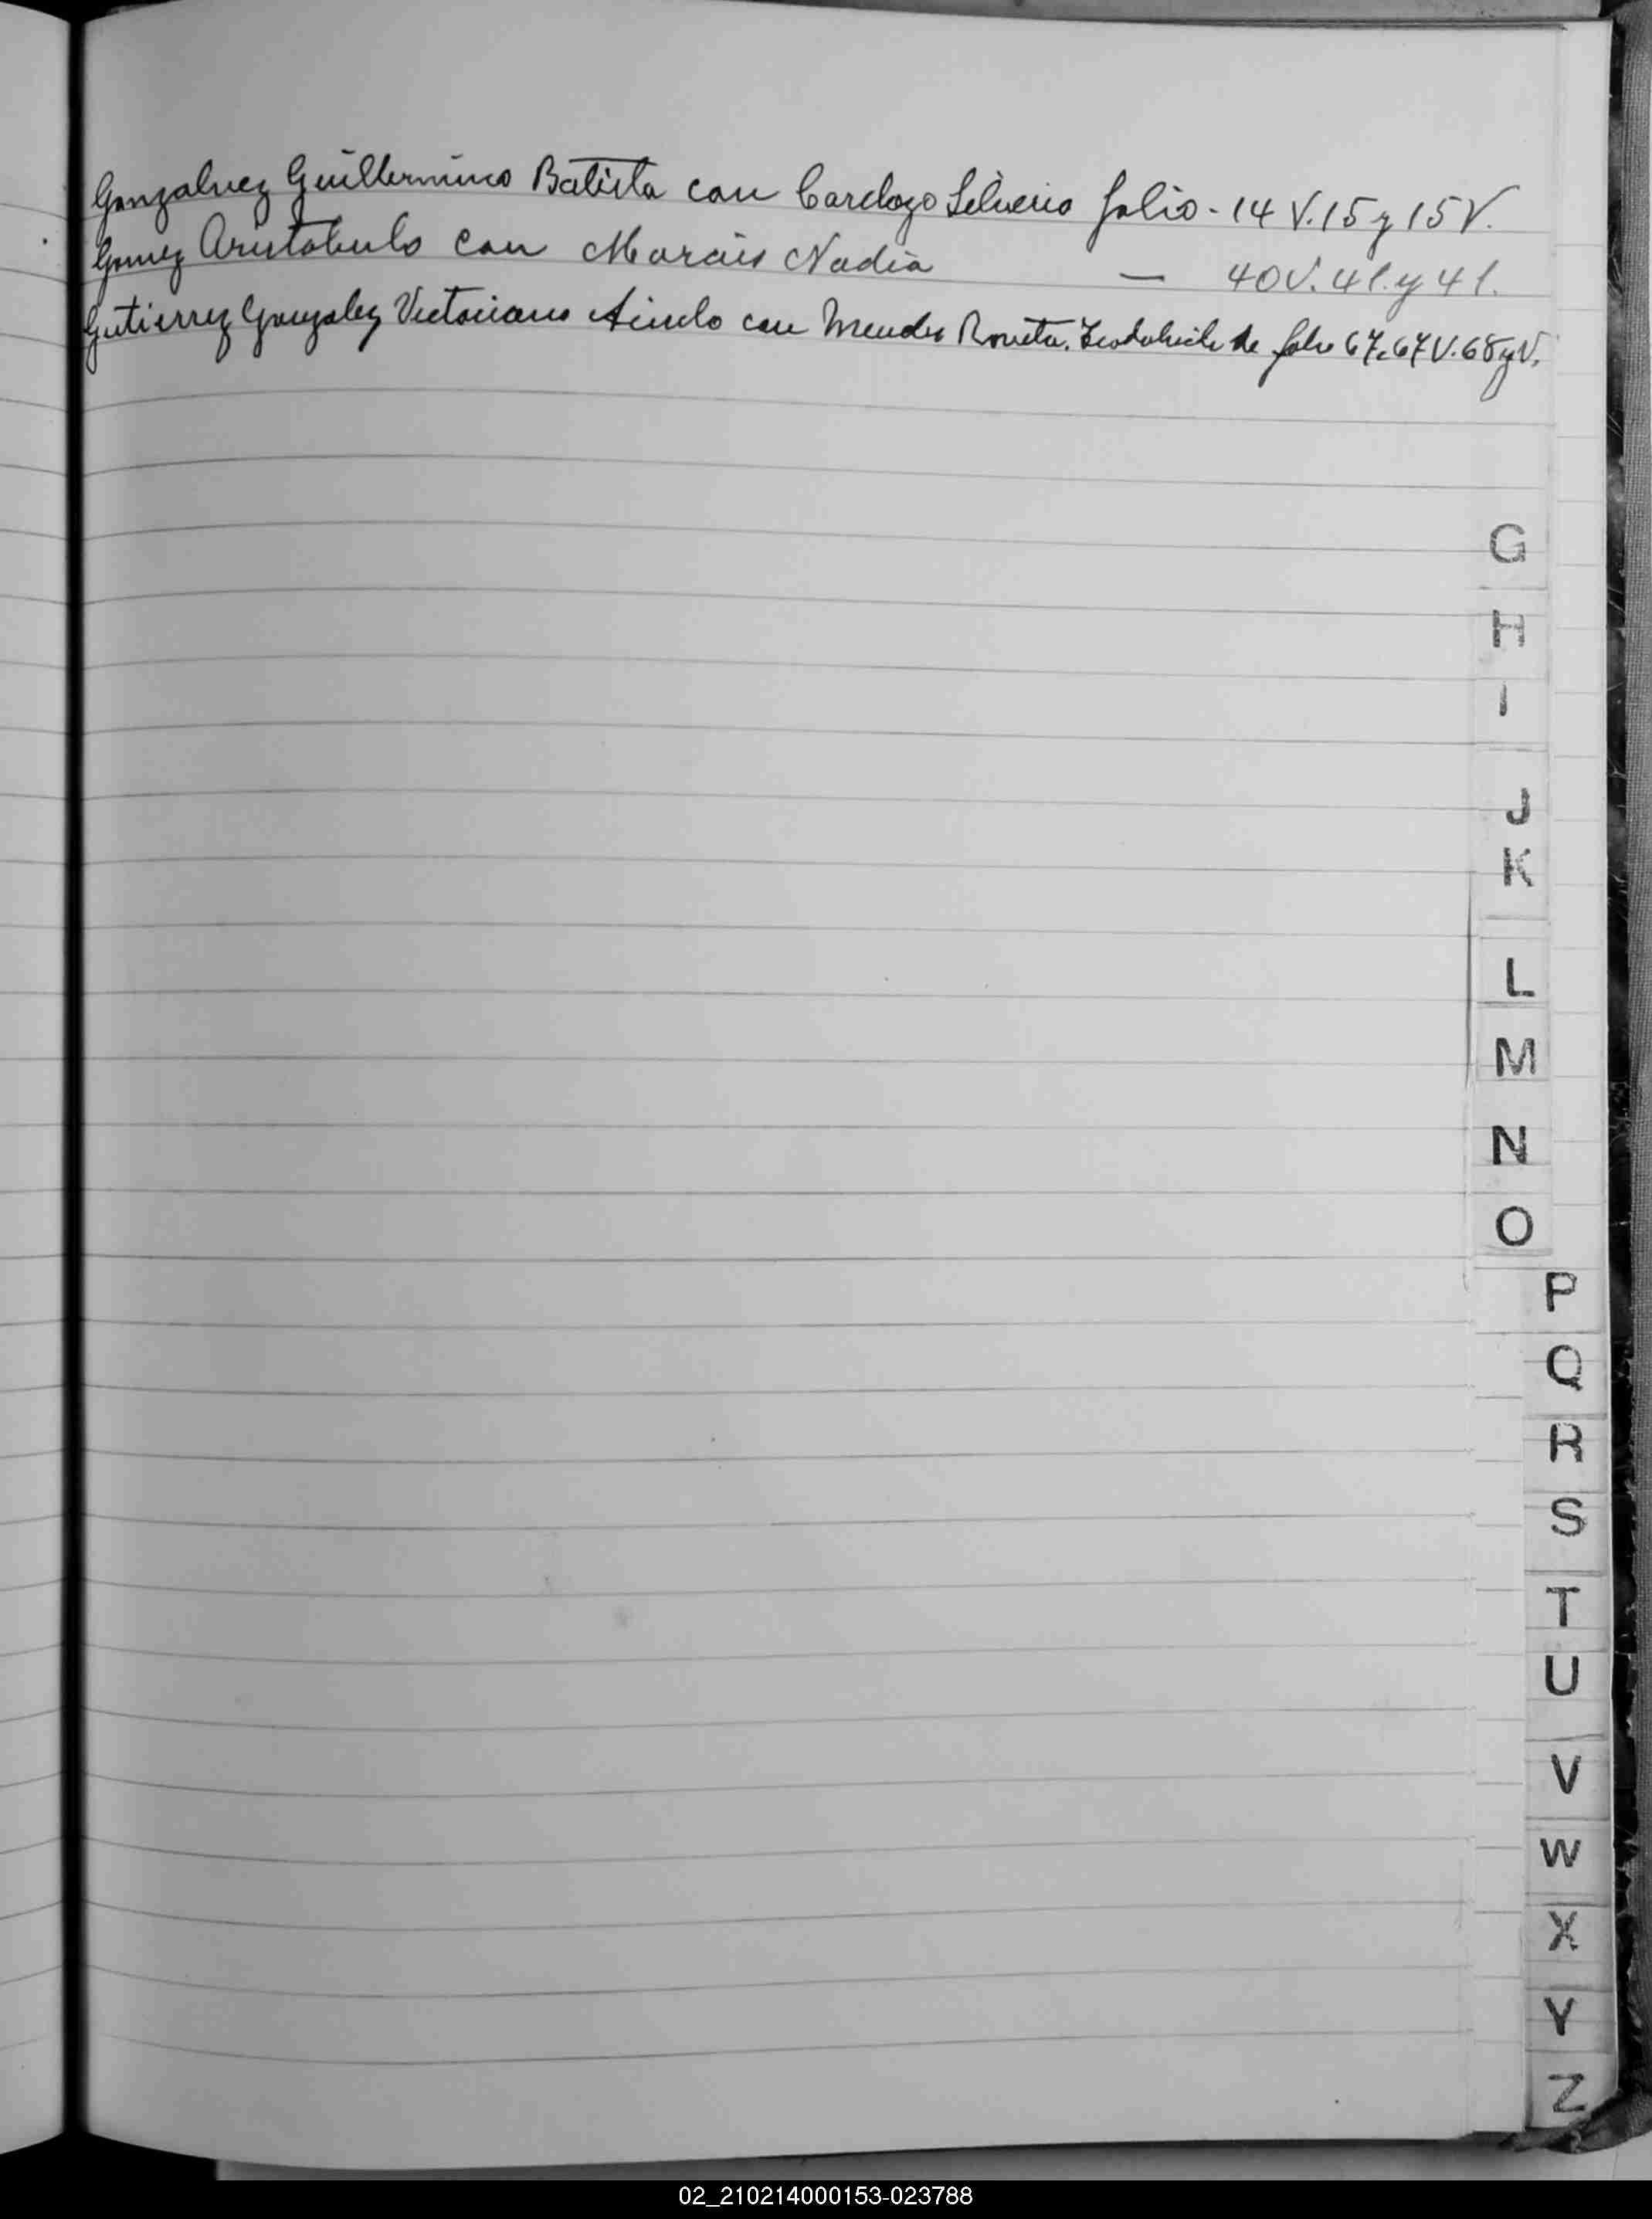 Gonzalvez Guillermino Batista con Cardozo Silverio folio - 14 V. 15 y 15 V.
Gomez Aristobulo con Morais Nadia — 40 V. 41. y 41.
Gutierrez Gonzalez Victoriano con Mendes folio 67. 67 V. 68 y V.
G
H
I
J
K
L
M
N
O
P
Q
R
S
T
U
V
W
X
Y
Z
02_210214000153-023788